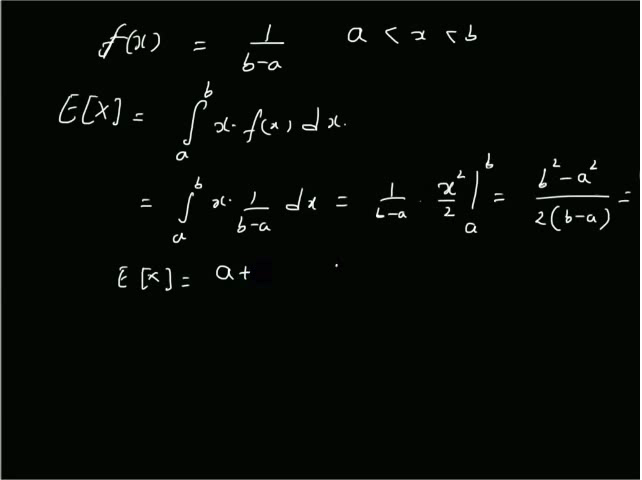 f(x) = 1/(b-a) a < x < b
E[X] = ∫_a^b x · f(x) dx.
= ∫_a^b x · 1/(b-a) dx = 1/(b-a) · x²/2 |_a^b = (b²-a²)/(2(b-a)) =
E[x] = a+